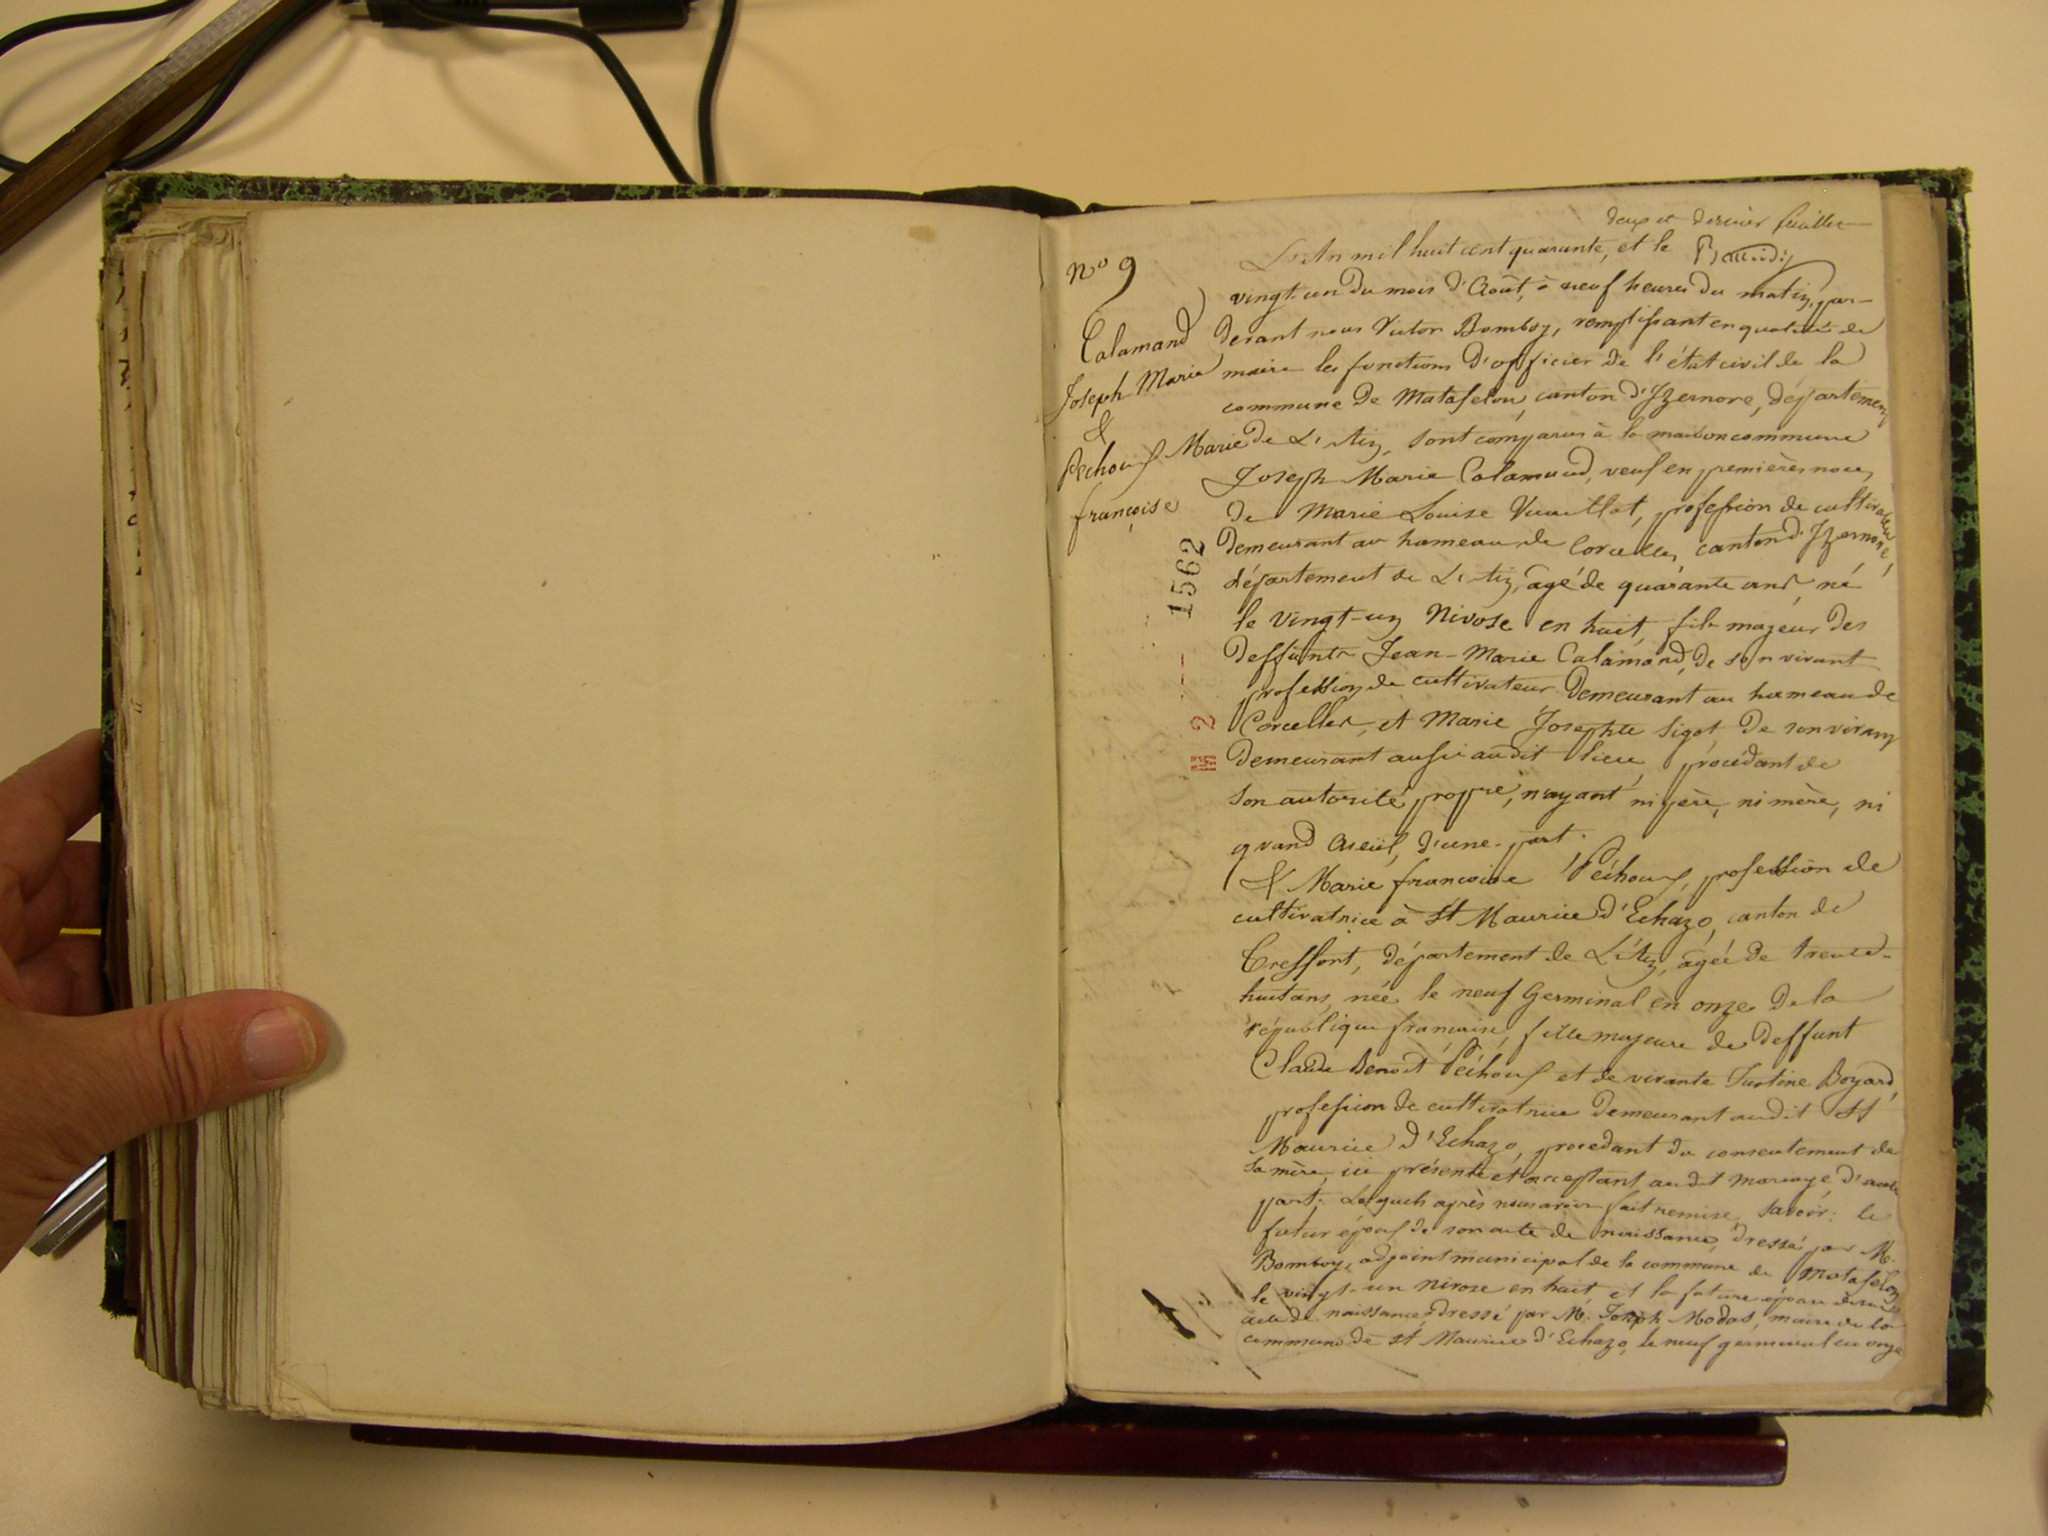 deux et dernier feuillet
N° 9
Calamand
Joseph Marie
&
Pechoux Marie
françoise
1562
M 2
L'An mil huit cent quarante, et le
vingt-un du mois d'Août, à neuf heures du matin, par-
devant nous Victor Bomboy, remplissant en qualité de
maire les fonctions d'officier de l'état civil de la
commune de Matafelon, canton d'Izernore, département
de L'Ain, sont comparus à la maison commune
Joseph Marie Calamand, veuf en premières noces
de Marie Louise Vuaillat, profession de cultivateur,
demeurant au hameau de Corcelles, canton d'Izernore,
département de L'Ain, agé de quarante ans, né
le vingt-un Nivose en huit, fils majeur des
deffunts Jean-Marie Calamand, de son vivant
profession de cultivateur demeurant au hameau de
Corcelles, et Marie Josephte Sigot de son vivant
demeurant aussi audit lieu, procédant de
son autorité propre, n'ayant ni père, ni mère, ni
grand aïeül, d'une part;
& Marie françoise Péchoux, profession de
cultivatrice à St Maurice d'Echazo, canton de
Treffort, département de L'Ain, agée de trente-
huit ans, née le neuf Germinal en onze de la
république française, fille majeure de deffunt
Claude Benoit Péchoux et de vivante Justine Boyard,
profession de cultivatrice demeurant audit St
Maurice d'Echazo, procédant du consentement de
sa mère, ici présente et acceptant audit mariage, d'autre
part; Lesquels après nous avoir fait remise, savoir: le
futur époux de son acte de naissance, dressé par M.
Bomboy, adjoint municipal de la commune de Matafelon
le vingt-un nivose en huit et la future épouse de son
acte de naissance, dressé par M. Joseph Modas, maire de la
commune de St Maurice d'Echazo, le neuf germinal en onze